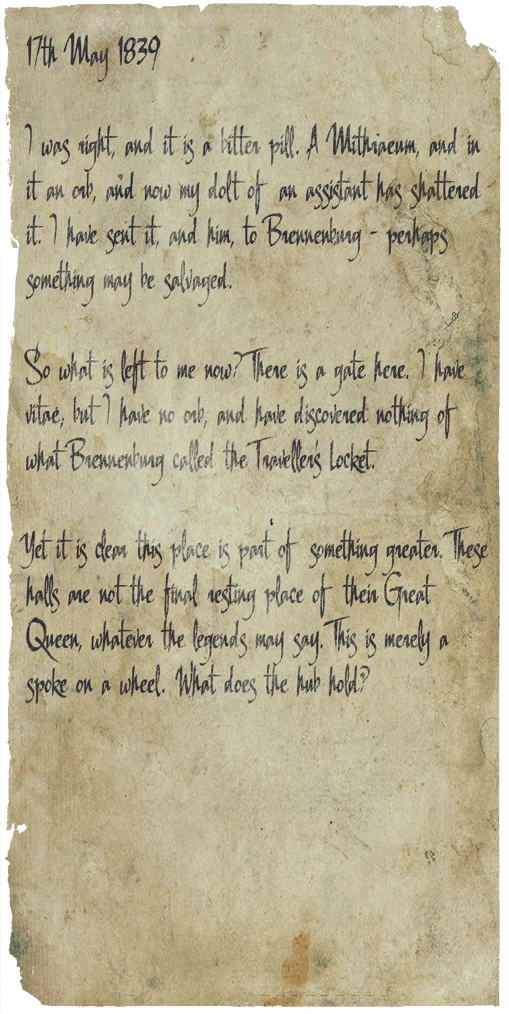 17th May 1839
I was right, and it is a bitter pill. A Mithraeum, and in
it an orb, and now my dolt of an assistant has shattered
it. I have sent it, and him, to Brennenburg - perhaps
something may be salvaged.
So what is left to me now? There is a gate here. I have
vitae, but I have no orb, and have discovered nothing of
what Brennenburg called the Traveller's Locket.
Yet it is clear this place is part of something greater. These
halls are not the final resting place of their Great
Queen, whatever the legends may say. This is merely a
spoke on a wheel. What does the hub hold?